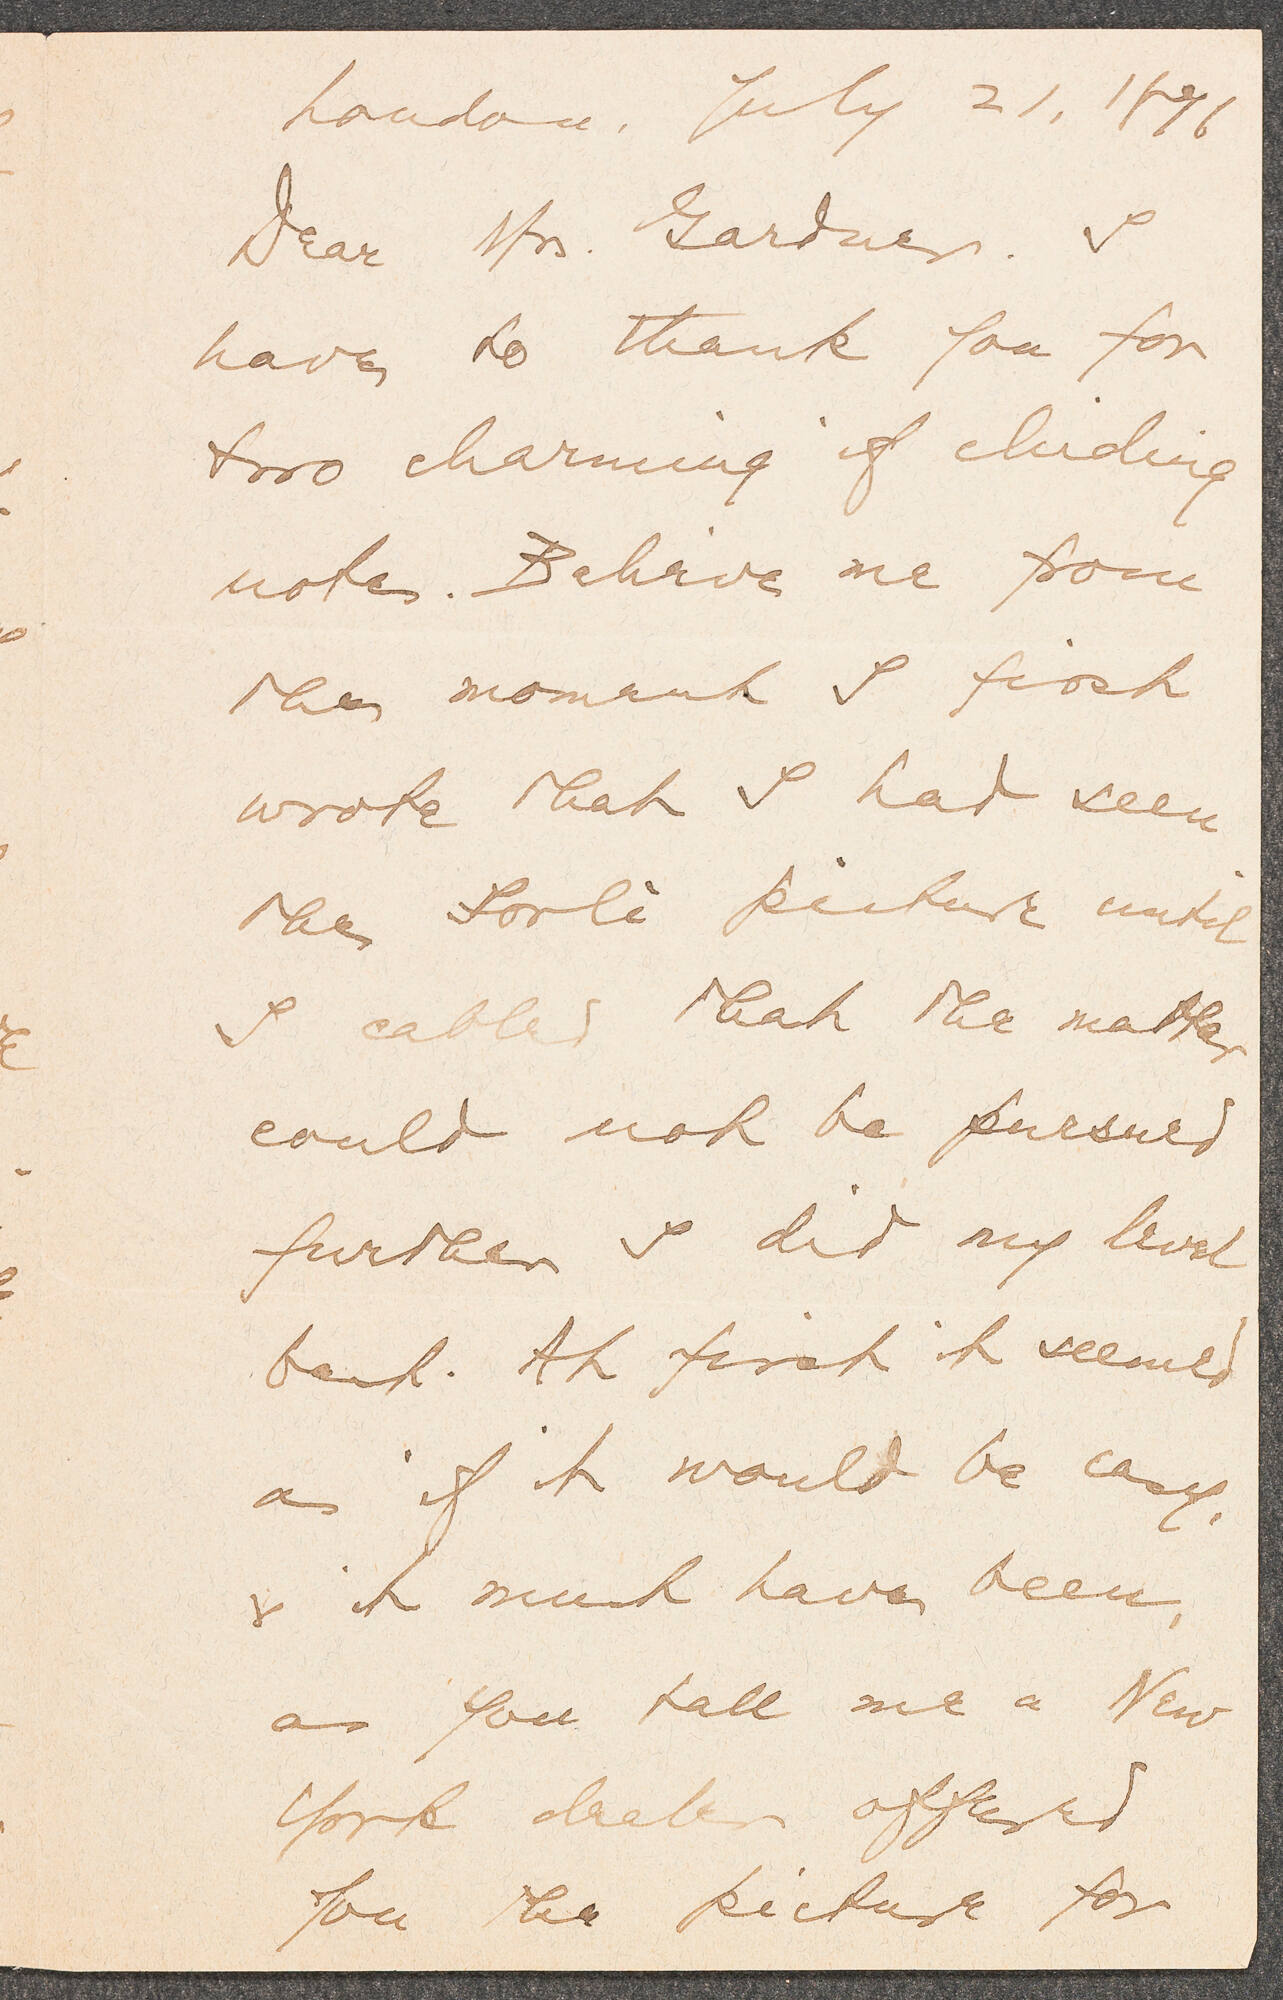 London. July 21, 1896
Dear Mrs. Gardner. I
have to thank you for
two charming if chiding
notes. Believe me from
the moment I first
wrote that I had seen
the picture until
I cabled that the matter
could not be pursued
further I did my level
best. At first it seemed
as if it would be easy,
& it must have been,
as you tell me a New
York dealer offered
you the picture for